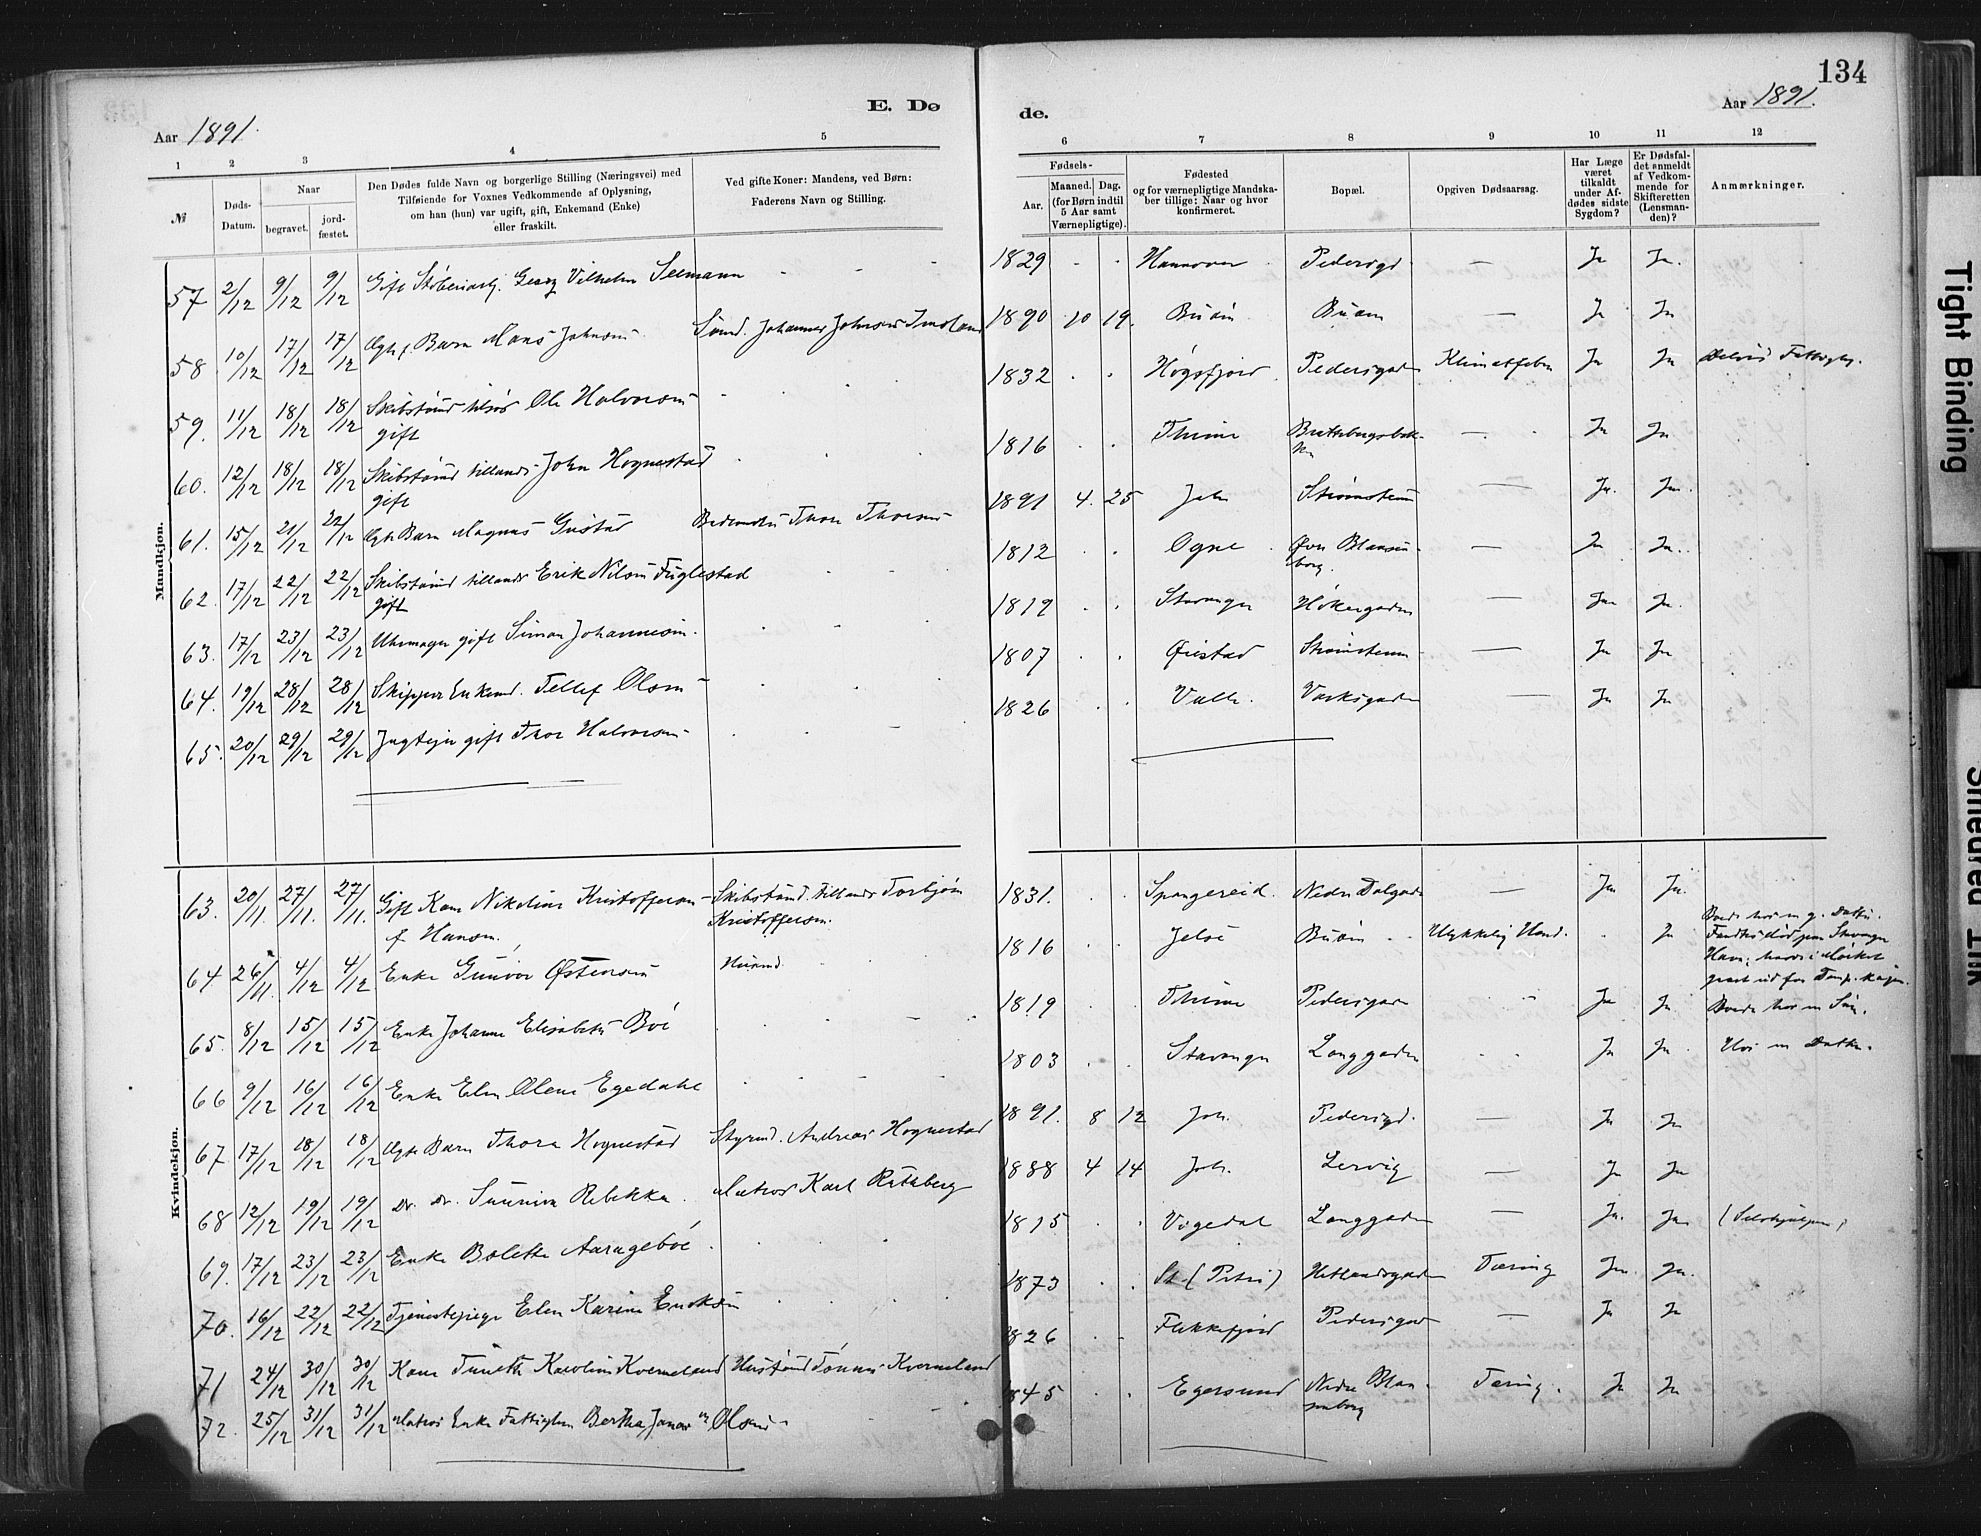 134
E. Dø
de.
Aar 1891.
Aar 1891.
1 2 3 4 5
6 7 8 9 10 11 12
№
Døds-Datum.
Naar
begravet. jordfæstet.
Den Dødes fulde Navn og borgerlige Stilling (Næringsvei) med
Tilføiende for Voxnes Vedkommende af Oplysning,
om han (hun) var ugift, gift, Enkemand (Enke)
eller fraskilt.
Ved gifte Koner: Mandens, ved Børn:
Faderens Navn og Stilling.
Fødsels-
Aar. Maaned. Dag.
(for Børn indtil
5 Aar samt
Værnepligtige).
Fødested
og for værnepligtige Mandska-
ber tillige: Naar og hvor
konfirmeret.
Bopæl.
Opgiven Dødsaarsag.
Har Læge
været
tilkaldt
under Af-
dødes sidste
Sygdom?
Er Dødsfal-
det anmeldt
af Vedkom-
mende for
Skifteretten
(Lensman-
den)?
Anmærkninger.
Mandkjøn.
57 2/12 9/12 9/12 Gift Georg Vilhelm Seemann 1829 Hannover Pedersgd. — Ja Ja.
58 10/12 17/12 17/12 Ægtef. Barn Mons Johnsen Smed. Johannes Johnsen Imsland 1890 10 19. Buøen Buøen — Ja Ja
59. 11/12 18/12 18/12 Skibstømd. Ole Halvorsen 1832 Høgsfjord Pedersgaden Klimatfeber Ja Ja Delvis Fattigby.
gift
60. 12/12 18/12 18/12 Skibstømd tillands John Hognestad 1816 Thime — Ja Ja
gift
61. 15/12 21/12 22/12 Ægte Barn Magnus Gustav Thore Thorsen 1891 4. 25 Joh Strømsteen — Ja. Ja.
62. 17/12 22/12 22/12 Skibstømd tillands Erik Nilsen Fuglestad 1812 Ogne Øvre Blaasen-borg. — Ja Ja.
gift
63. 17/12 23/12 23/12 Uhrmager gift Simon Johannesen. 1819 Stavanger Høkergaden — Ja Ja.
64. 19/12 28/12 28/12 Skipper Enkemd. Tellef Olsen 1807 Øiestad Strømsteen — Ja Ja
65. 20/12 29/12 29/12 Jagteier gift Thor Halvorsen 1826 Valle. Varksgaden — Ja Ja
Kvindekjøn.
63. 20/11. 27/11. 27/11. Gift Kone Nikoline Kristoffersen Skibstømd. tillands Torbjørn 1831. Spangereid. Nedre Dalgaden — Ja Ja.
f. Hansen. Kristoffersen.
64 26/11. 4/12 4/12 Enke Gunvor Østensen Husmd. 1816 Jelse Buøen Ulykkelig Hænd. Ja Boede hos en g. Datter.
Fandtes død paa Stavanger
Havn; havde i Mørket
gaaet ud for Damp.kajen.
65. 8/12 15/12 15/12 Enke Johanne Elisabeth Bøe 1819 Thime Pedersgaden Ja Ja Boede hos en Søn.
66 9/12 16/12 16/12 Enke Elen Olene Egedahl 1803 Stavanger Langgaden Ja Ja Hos en Datter.
67 17/12 18/12 18/12 Ægte Barn Thora Hognestad Styrmd. Andreas Hognestad 1891. 8 12 Joh. Pedersgd. — Ja Ja
68 12/12 19/12 19/12 Do. do. Sunniva Rebekka. Matros Karl Rethberg 1888 4 14 Joh. Lervig — Ja Ja
69. 17/12 23/12 23/12 Enke Bolette Aaragebøe 1815 Vigedal Langgaden — Ja. Ja
70. 16/12 22/12 22/12 Tjenestepige Elen Karine Eriksen 1873 St. (Petri) Hetlandsgaden Tæring Ja Ja.
71 24/12 30/12 30/12 Kone Karoline Kverneland Tønnes Kverneland 1826 Flekkefjord Pedersgad — Ja Ja
72. 25/12 31/12 31/12 Matros Enke Fattiglem Bertha Olsen 1845 Egersund Nedre Blaa-senborg Tæring. Ja Ja
Tight Binding
Smeared Ink